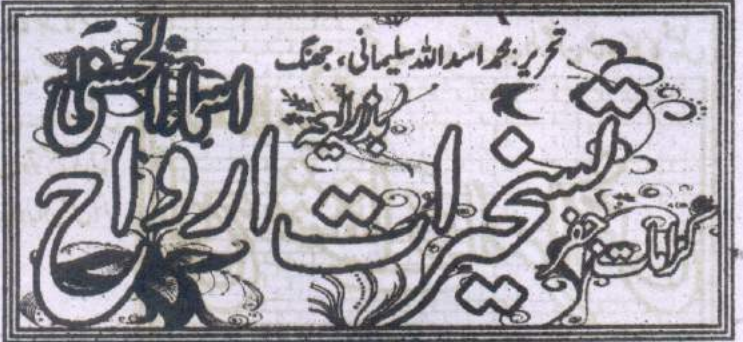 تحریر: محمد اسد اللہ سلیمانی، جھنگ
تسخیرات ارواح
بذریعہ
اسماء الحسنیٰ